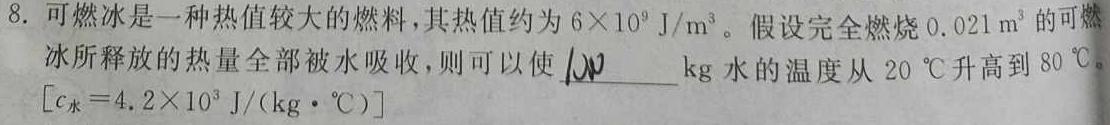 8. 可燃冰是一种热值较大的燃料,其热值约为 6×10⁹ J/m³。假设完全燃烧 0.021 m³ 的可燃
冰所释放的热量全部被水吸收,则可以使 kg 水的温度从 20 ℃升高到 80 ℃。
[c水=4.2×10³ J/(kg·℃)]